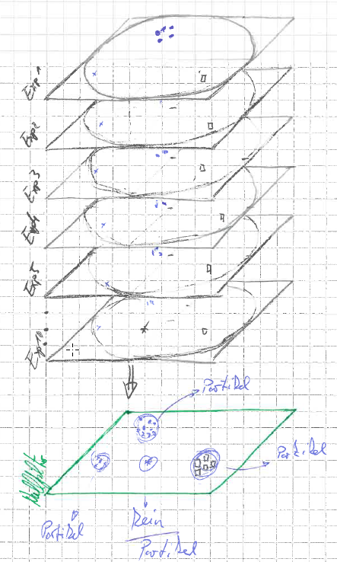 Exp 1
Exp 2
Exp 3
Exp 4
Exp 5
Exp 10
Partikel
Partikel
Partikel
Kein
Partikel